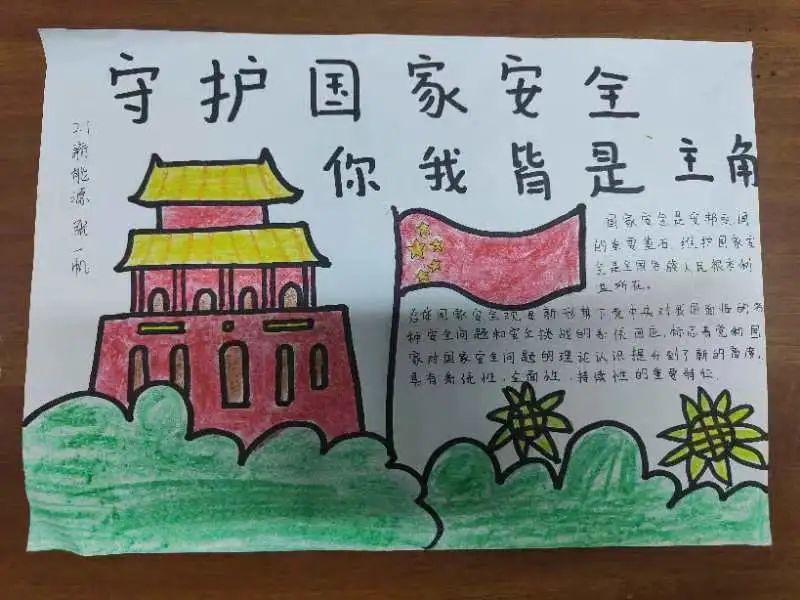 守护国家安全
你我皆是主角
21新能源 张一帆
国家安全是安邦定国
的重要基石,维护国家安
全是全国各族人民根本利
益所在。
总体国家安全观是新形势下党中央对我国面临的各
种安全问题和安全挑战的系统回应,标志着党和国
家对国家安全问题的理论认识提升到了新的高度,
具有系统性、全面性、持续性的重要特征.